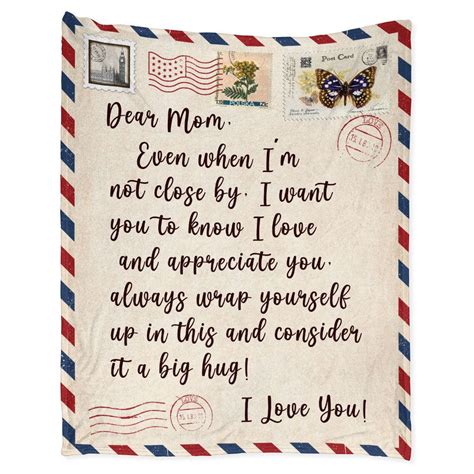 Post Card
POLSKA
LOVE
Dear Mom,
Even when I'm
not close by, I want
you to know I love
and appreciate you,
always wrap yourself
up in this and consider
it a big hug!
I Love You!